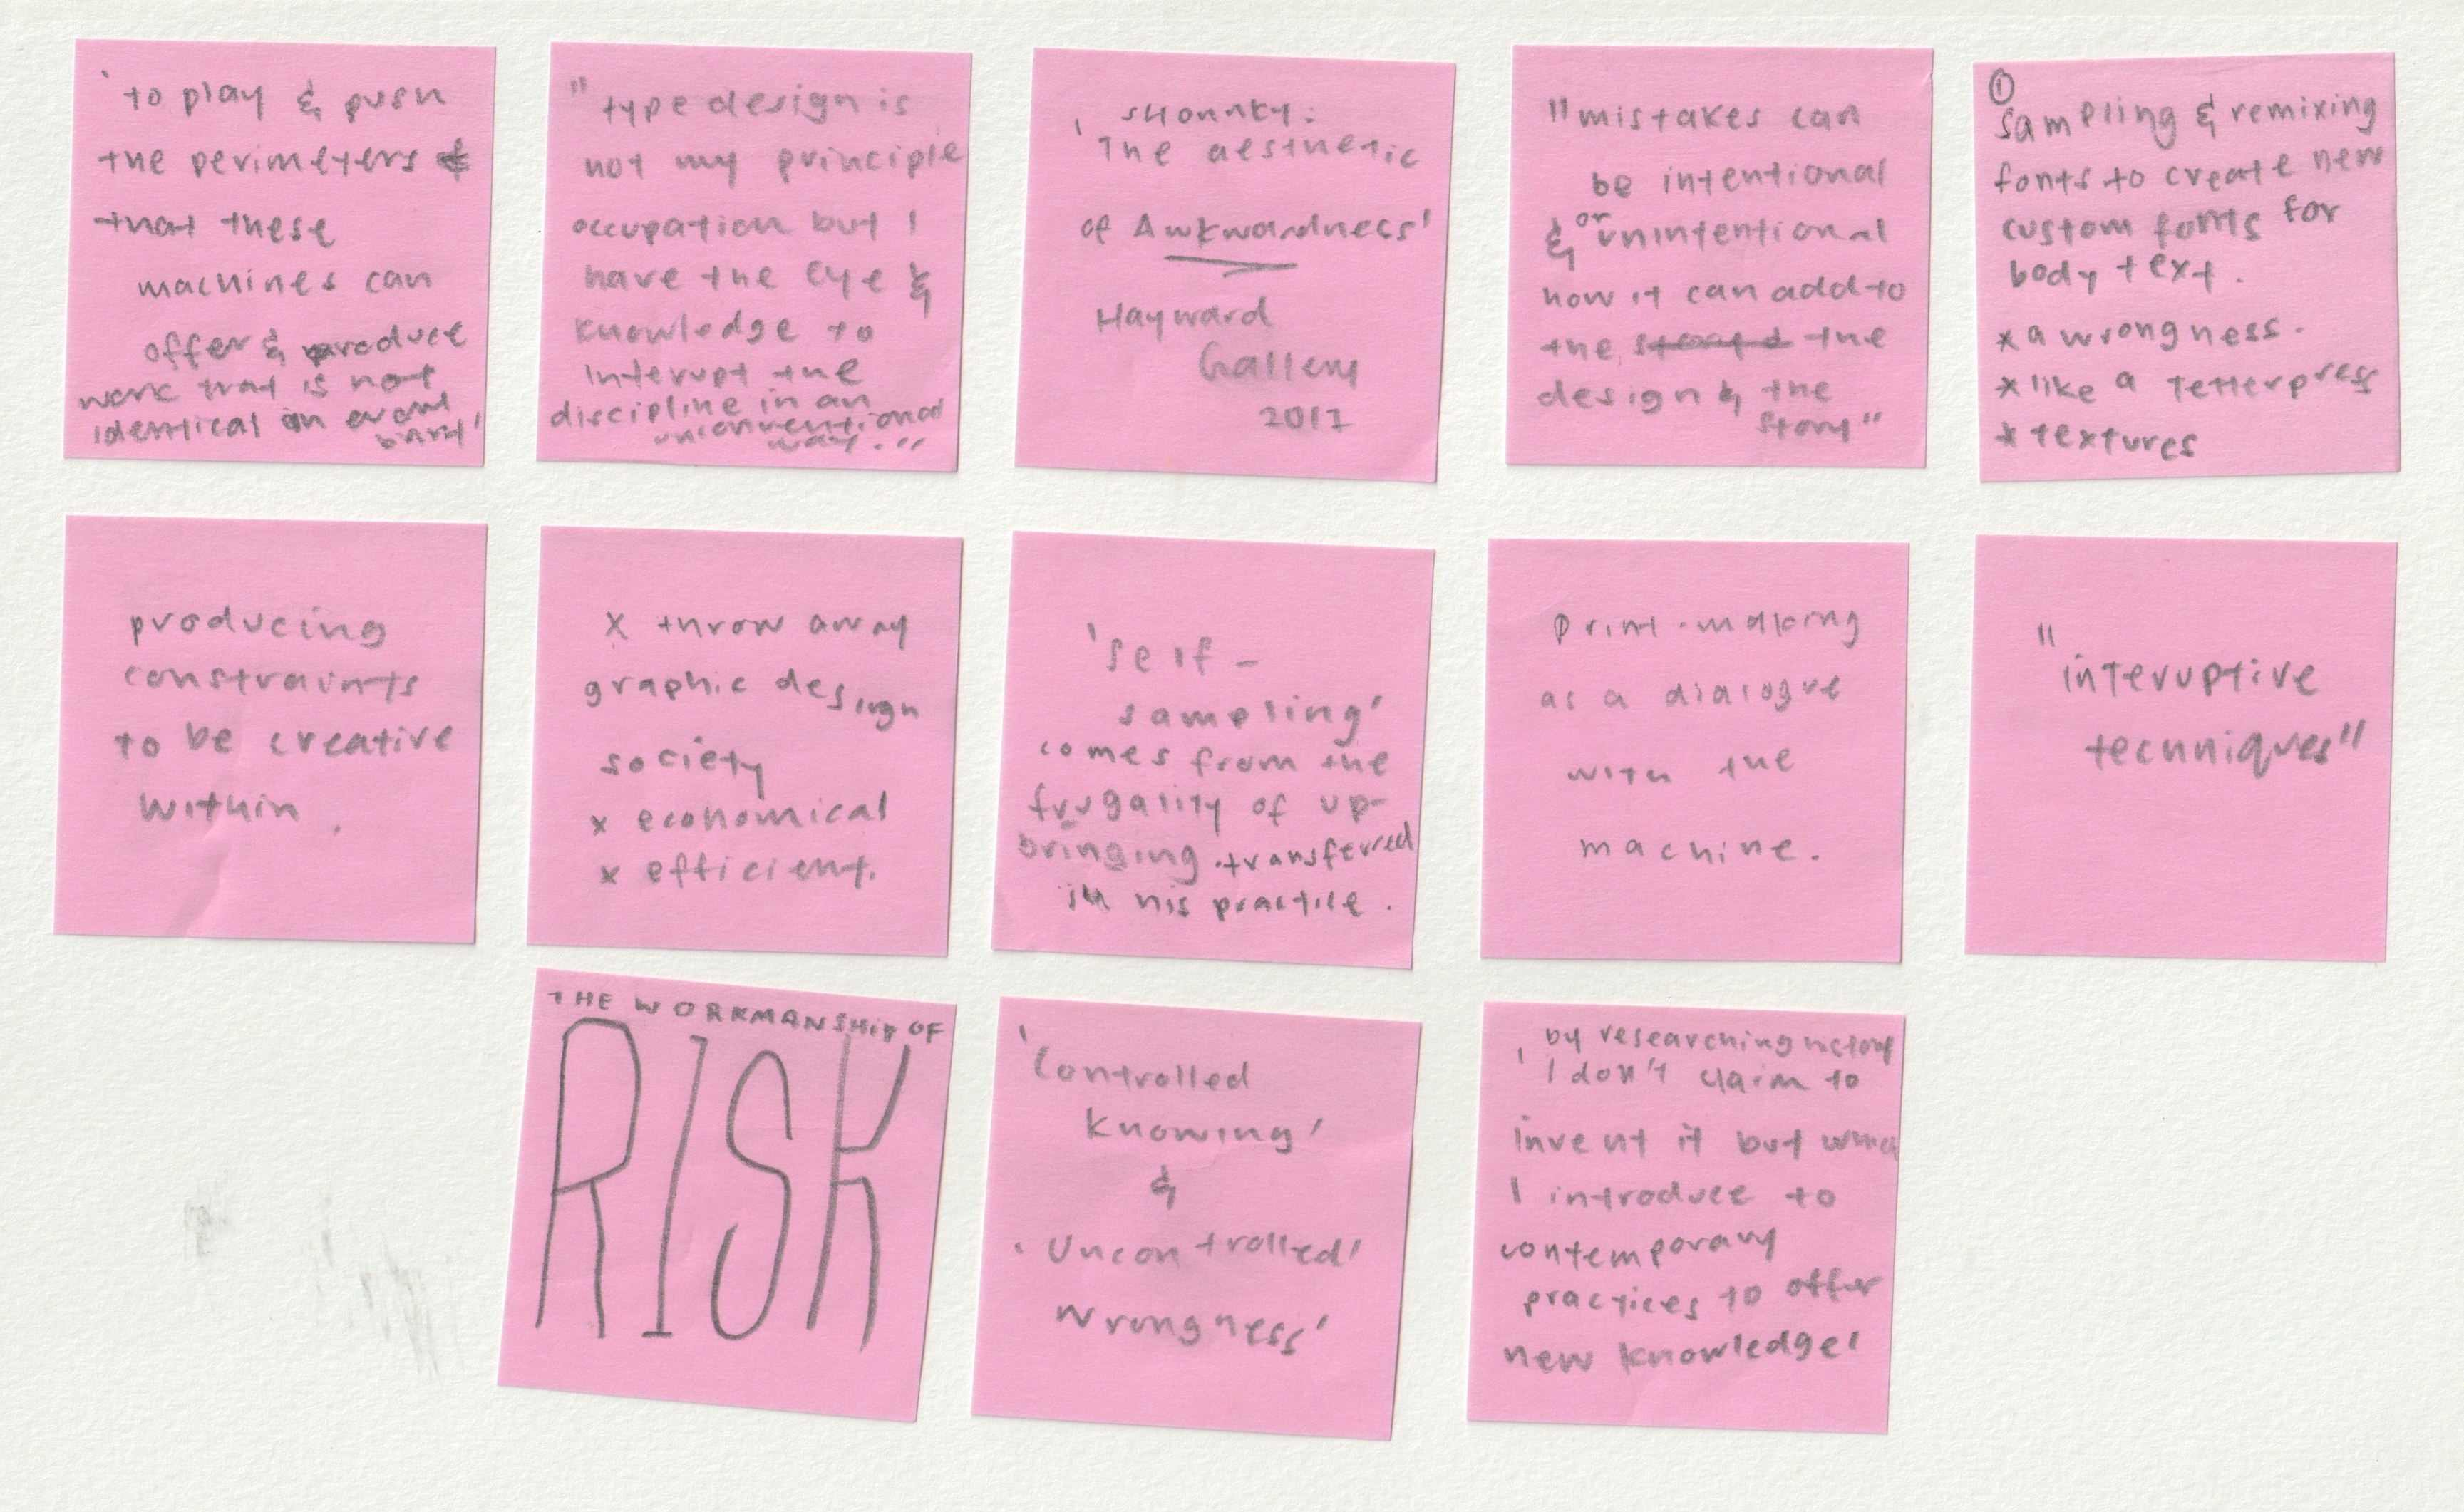 'to play & push
the perimeters &
that these
machines can
offer & produce
work that is not
identical in every
"type design is
not my principle
occupation but I
have the eye &
knowledge to
interupt the
discipline in an
unconventional
way."
shonnky:
'The aesthetic
of Awkwardness'
Hayward
Gallery
2017
"mistakes can
be intentional
& or unintentional
how it can add to
the the
design & the
story"
①
sampling & remixing
fonts to create new
custom fonts for
body text.
x a wrongness.
x like a letterpress
x textures
producing
constraints
to be creative
within.
x throw away
graphic design
society
x economical
x efficient.
'self-
sampling'
comes from the
frugality of up-
bringing transferred
in his practice.
print-making
as a dialogue
with the
machine.
"interuptive
techniques"
THE WORKMANSHIP OF
RISK
'Controlled
knowing'
&
'Uncontrolled'
wrongness'
by researching history
'I don't claim to
invent it but which
I introduce to
contemporary
practices to offer
new knowledge'